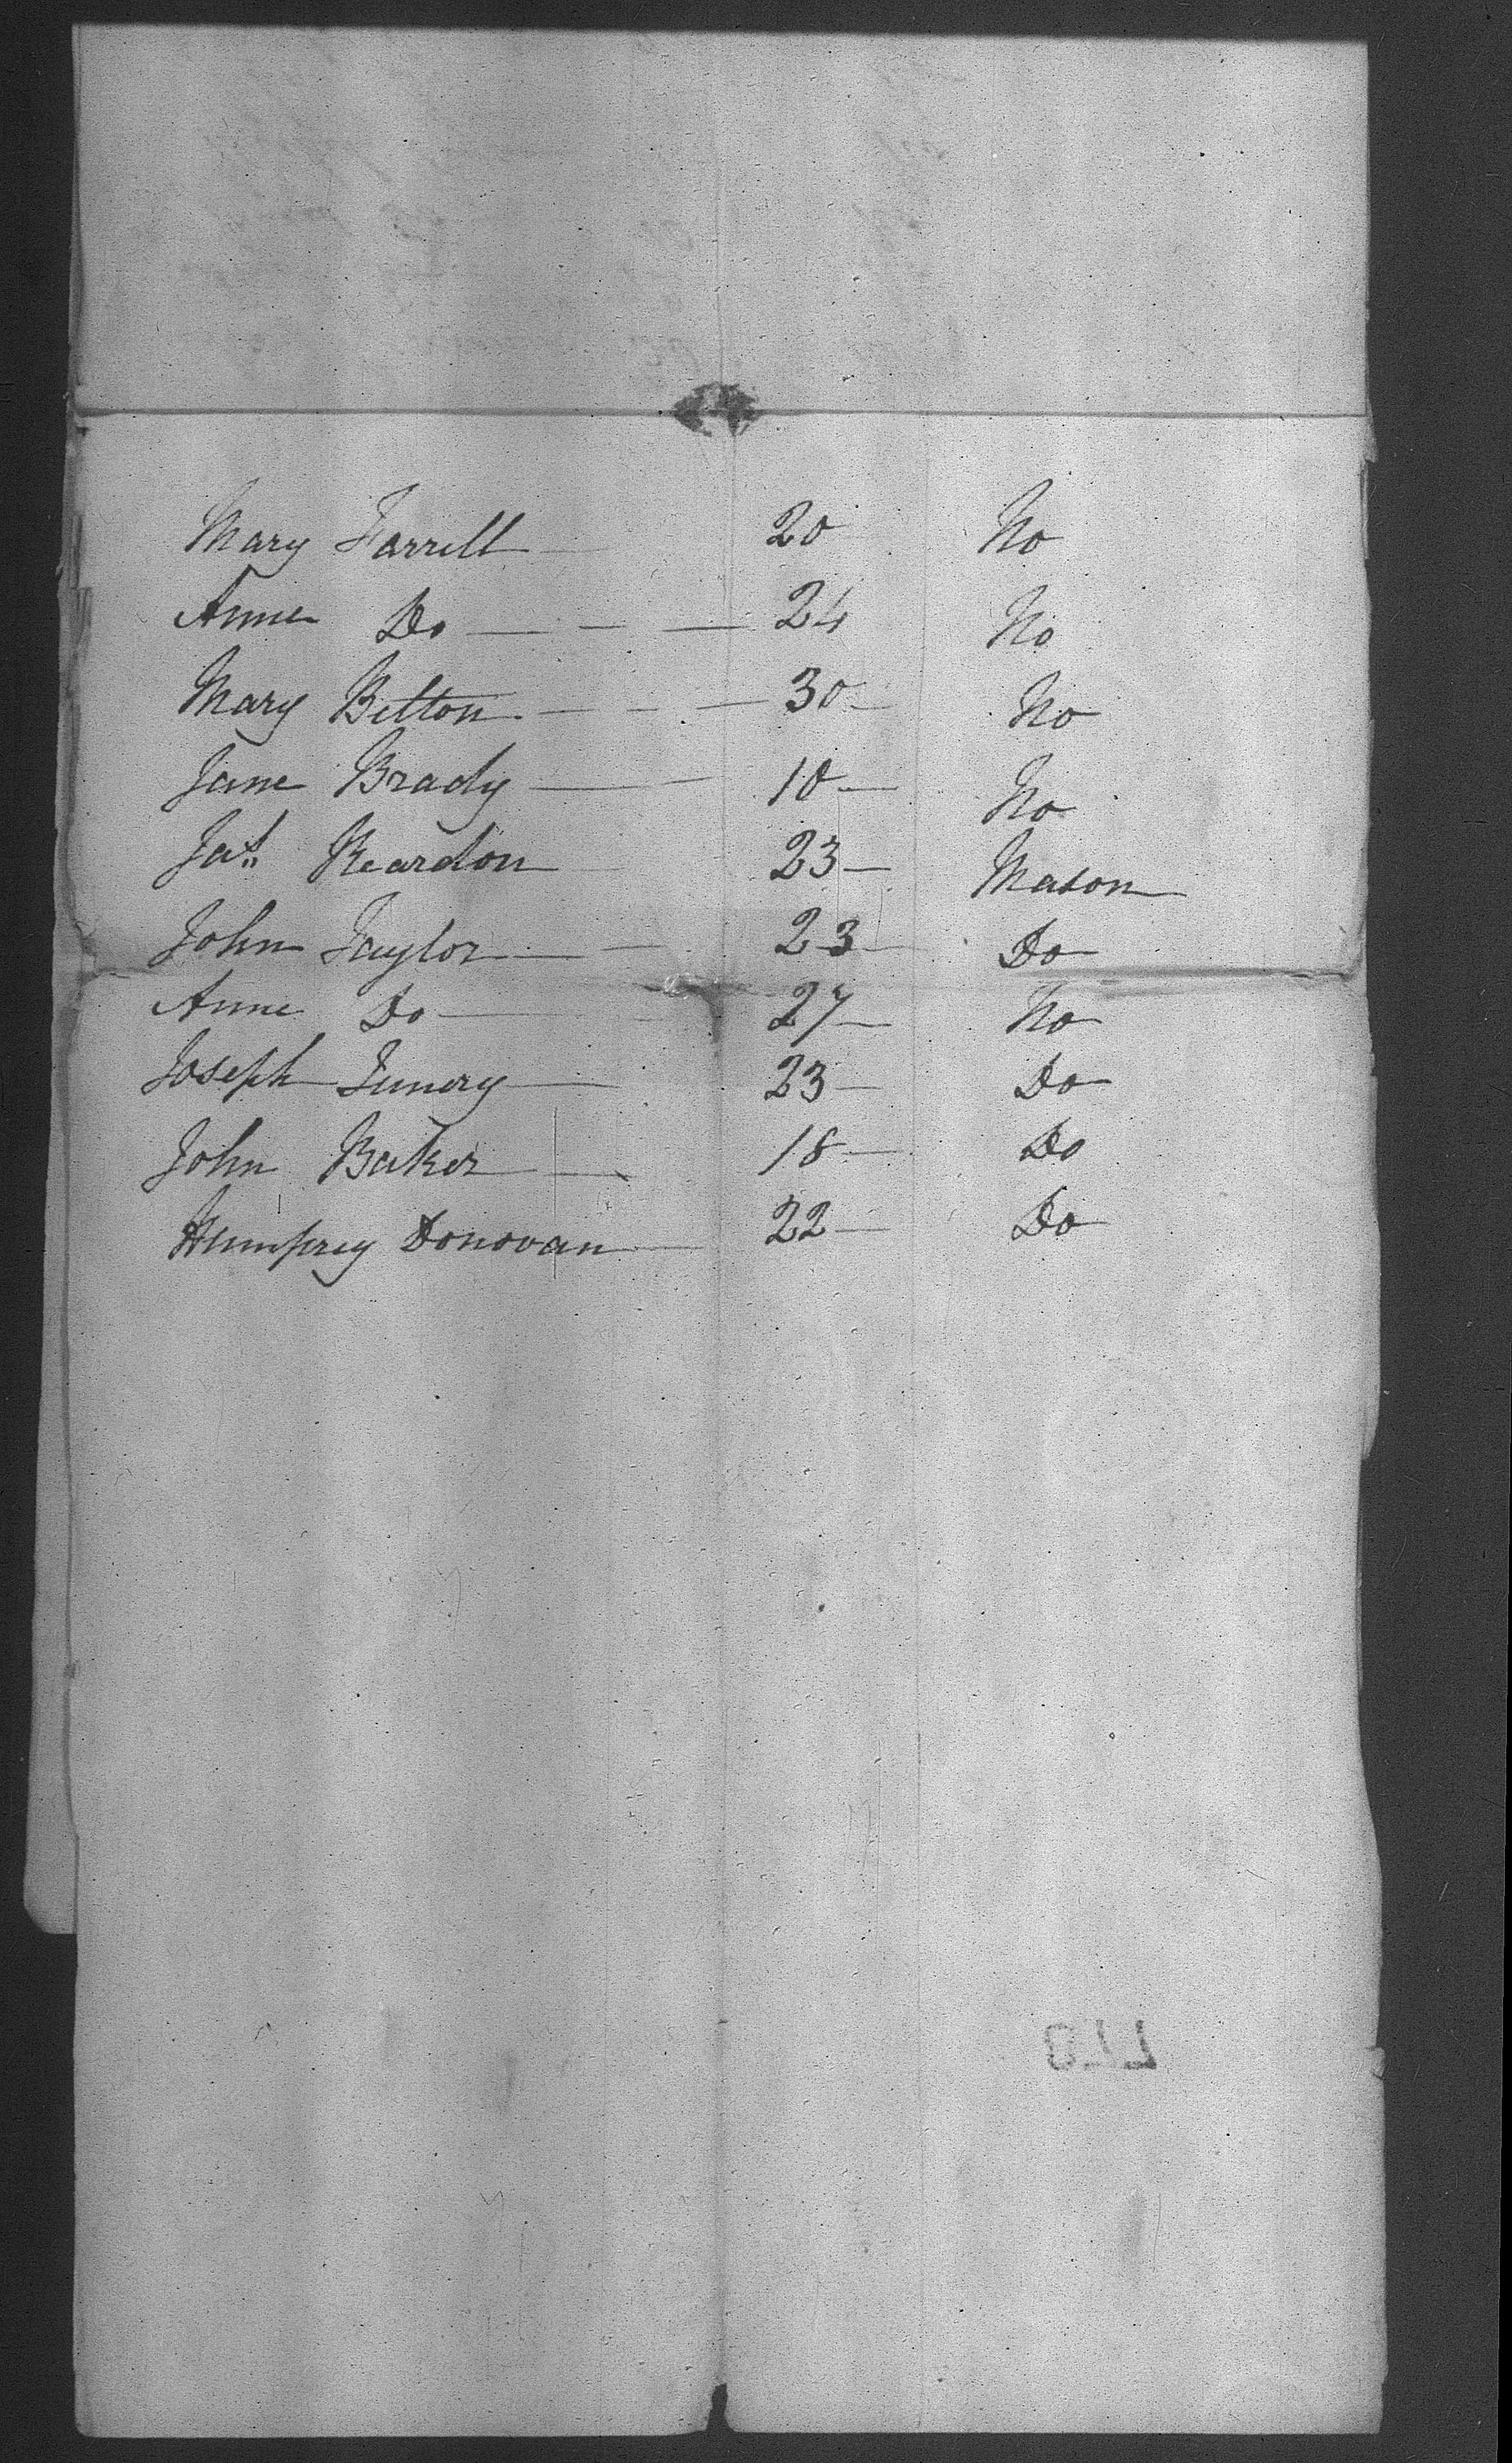 Mary Farrell 20 No
Anne Do 24 No
Mary Belton 30 No
Jane Brady 10 No
Jas Reardon 23 Mason
John Taylor 23 Do
Anne Do 27 No
Joseph 23 Do
John Baker 18 Do
Humphrey Donovan 22 Do